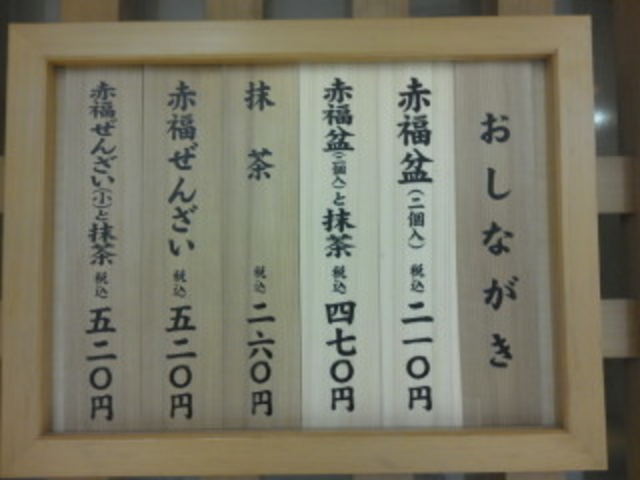 おしながき
赤福盆(二個入)税込二一〇円
赤福盆(二個入)と抹茶税込四七〇円
抹茶税込二六〇円
赤福ぜんざい税込五二〇円
赤福ぜんざい(小)と抹茶税込五二〇円